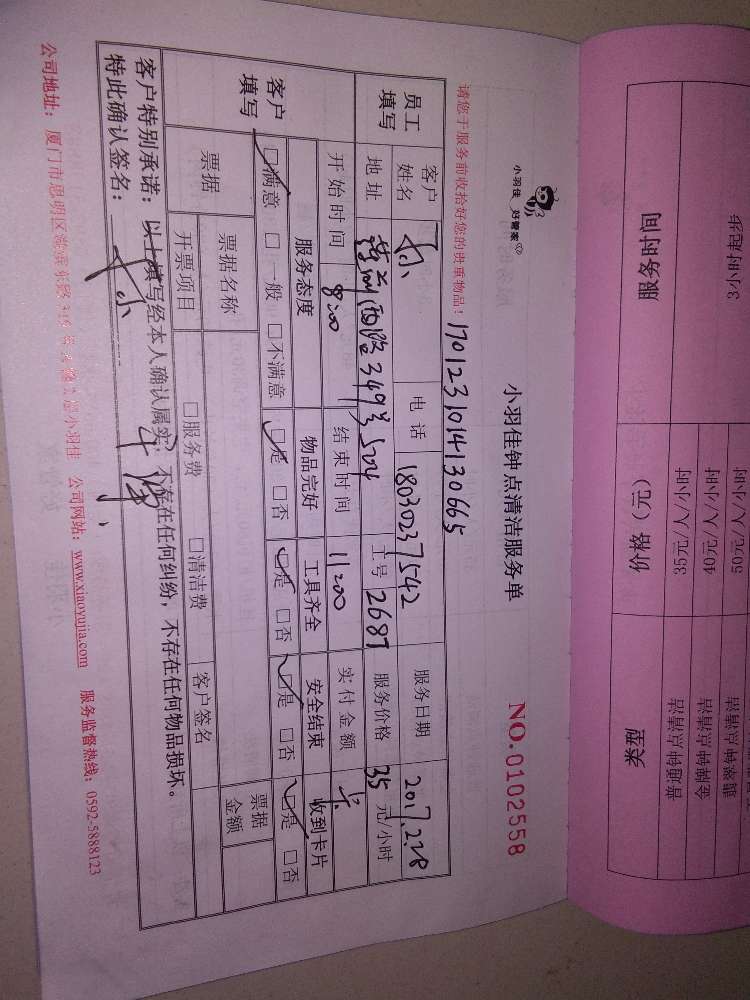 服务时间 价格（元） 类型
3小时起步 35元/人/小时 普通钟点清洁
40元/人/小时 金牌钟点清洁
50元/人/小时 翡翠钟点清洁
小羽佳 好管家
小羽佳钟点清洁服务单 NO.0102558
请您于服务前收拾好您的贵重物品！ 170123101413 0665
员工填写 客户姓名 电话 18030237542 服务日期 2017.2.28
地址 西路349号504 工号 2687 服务价格 35 元/小时
开始时间 8:00 结束时间 11:00 实付金额 卡
客户填写 服务态度 物品完好 工具齐全 安全结束 收到卡片
☑满意 □一般 □不满意 ☑是 □否 ☑是 □否 ☑是 □否 ☑是 □否
票据 票据名称 票据金额
开票项目 □服务费 □清洁费 客户签名
客户特别承诺：以上填写经本人确认属实，不存在任何纠纷，不存在任何物品损坏。
特此确认签名：
公司地址：厦门市思明区 小羽佳 公司网站：www.xiaoyujia.com 服务监督热线：0592-5888123